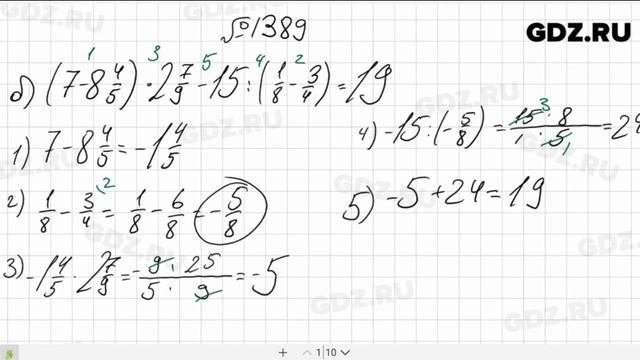 №1389
GDZ.RU
1 3 5 4 2
б) (7-8 4/5)·2 7/9-15:(1/8-3/4)=19
1) 7-8 4/5=-1 4/5
2) 1/8-3/4=1/8-6/8=-5/8
3) -1 4/5·2 7/9=-9·25/5·9=-5
4) -15:(-5/8)=15·8/1·5=24
5) -5+24=19
1 10